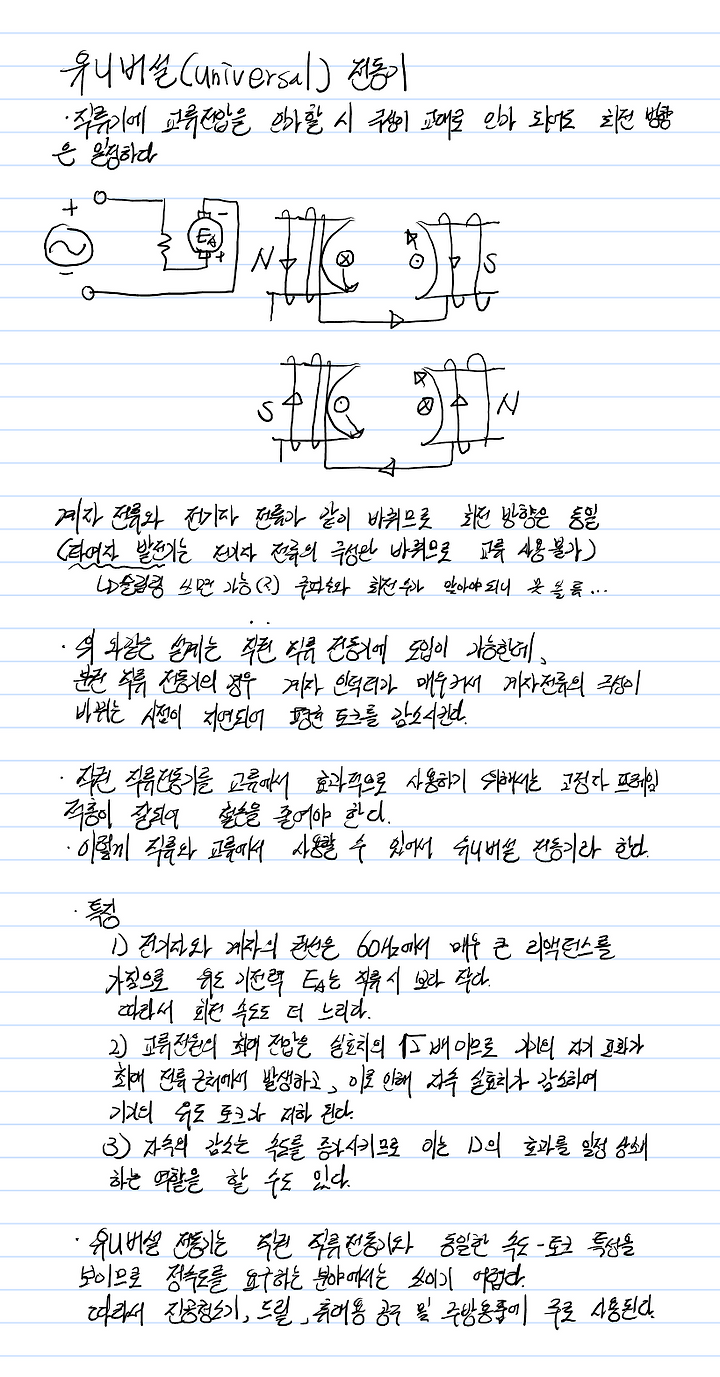 유니버설(universal) 전동기
· 직류기에 교류전압을 인가할 시 극성이 교대로 인가 되어도 회전 방향
은 일정하다
+ EA - +
-
N ⊗ ⊙ S
S ⊙ ⊗ N
계자 전류와 전기자 전류가 같이 바뀌므로 회전 방향은 동일
(타여자 발전기는 전기자 전류의 극성만 바뀌므로 교류 사용불가)
↳슬립링 쓰면 가능(?) 주파수와 회전수가 맞아야되니 못 쓸듯...
· 위 와같은 설계는 직권 직류 전동기에 도입이 가능한데,
분권 직류 전동기의 경우 계자 인덕터가 매우커서 계자전류의 극성이
바뀌는 시점이 지연되어 평균 토크를 감소시킨다.
· 직권 직류전동기를 교류에서 효과적으로 사용하기 위해서는 고정자 프레임
적층이 잘되어 철손을 줄여야 한다.
· 이렇게 직류와 교류에서 사용할 수 있어서 유니버설 전동기라 한다.
· 특징
1) 전기자와 계자의 권선은 60Hz에서 매우 큰 리액턴스를
가짐으로 유도 기전력 EA는 직류시 보다 작다.
따라서 회전 속도도 더 느리다.
2) 교류전원의 최대 전압은 실효치의 √2 배이므로 기기의 자기 포화가
최대 전류 근처에서 발생하고, 이로 인해 자속 실효치가 감소하여
기기의 유도 토크가 저하 된다.
3) 자속의 감소는 속도를 증가시키므로 이는 1)의 효과를 일정 상쇄
하는 역할을 할 수도 있다.
· 유니버설 전동기는 직권 직류전동기와 동일한 속도-토크 특성을
보이므로 정속도를 요구하는 분야에서는 쓰이기 어렵다.
따라서 진공청소기, 드릴, 휴대용 공구 및 주방용품에 주로 사용된다.